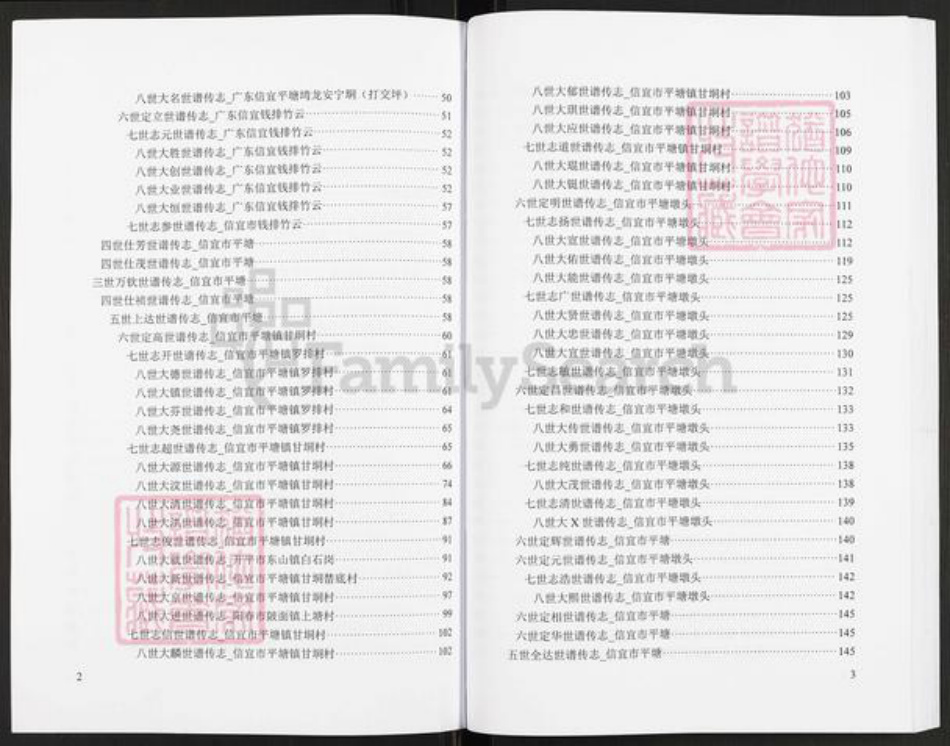 八世大名世谱传志_广东信宜平塘塆龙安宁垌（打交坪） 50
六世定立世谱传志_广东信宜钱排竹云 51
七世志元世谱传志_广东信宜钱排竹云 52
八世大胜世谱传志_广东信宜钱排竹云 52
八世大创世谱传志_广东信宜钱排竹云 52
八世大业世谱传志_广东信宜钱排竹云 52
八世大恒世谱传志_广东信宜钱排竹云 57
七世志参世谱传志_信宜市钱排竹云 57
四世仕芳世谱传志_信宜市平塘 58
四世仕茂世谱传志_信宜市平塘 58
三世万钦世谱传志_信宜市平塘 58
四世仕祯世谱传志_信宜市平塘 58
五世上达世谱传志_信宜市平塘 58
六世定高世谱传志_信宜市平塘镇甘垌村 60
七世志开世谱传志_信宜市平塘镇罗排村 61
八世大德世谱传志_信宜市平塘镇罗排村 61
八世大镇世谱传志_信宜市平塘镇罗排村 61
八世大芬世谱传志_信宜市平塘镇罗排村 64
八世大尧世谱传志_信宜市平塘镇罗排村 65
七世志超世谱传志_信宜市平塘镇甘垌村 65
八世大源世谱传志_信宜市平塘镇甘垌村 66
八世大汶世谱传志_信宜市平塘镇甘垌村 74
八世大清世谱传志_信宜市平塘镇甘垌村 84
八世大洪世谱传志_信宜市平塘镇甘垌村 87
七世志俊世谱传志_信宜市平塘镇甘垌村 91
八世大 世谱传志_开平市东山镇白石岗 91
八世大新世谱传志_信宜市平塘镇甘垌替底村 92
八世大京世谱传志_信宜市平塘镇甘垌村 97
八世大进世谱传志_阳春市陂面镇上塘村 99
七世志信世谱传志_信宜市平塘镇甘垌村 102
八世大麟世谱传志_信宜市平塘镇甘垌村 102
2
八世大郁世谱传志_信宜市平塘镇甘垌村 103
八世大琪世谱传志_信宜市平塘镇甘垌村 105
八世大应世谱传志_信宜市平塘镇甘垌村 106
七世志道世谱传志_信宜市平塘镇甘垌村 109
八世大琨世谱传志_信宜市平塘镇甘垌村 110
八世大锟世谱传志_信宜市平塘镇甘垌村 110
六世定明世谱传志_信宜市平塘墩头 111
七世志扬世谱传志_信宜市平塘墩头 112
八世大宣世谱传志_信宜市平塘墩头 112
八世大佑世谱传志_信宜市平塘墩头 119
八世大能世谱传志_信宜市平塘墩头 125
七世志广世谱传志_信宜市平塘墩头 125
八世大贤世谱传志_信宜市平塘墩头 125
八世大忠世谱传志_信宜市平塘墩头 129
八世大宜世谱传志_信宜市平塘墩头 130
七世志敏世谱传志_信宜市平塘墩头 131
六世定昌世谱传志_信宜市平塘墩头 132
七世志和世谱传志_信宜市平塘墩头 133
八世大传世谱传志_信宜市平塘墩头 133
八世大勇世谱传志_信宜市平塘墩头 135
七世志纯世谱传志_信宜市平塘墩头 138
八世大茂世谱传志_信宜市平塘墩头 138
七世志清世谱传志_信宜市平塘墩头 139
八世大X世谱传志_信宜市平塘墩头 140
六世定辉世谱传志_信宜市平塘 140
六世定元世谱传志_信宜市平塘墩头 141
七世志浩世谱传志_信宜市平塘墩头 142
八世大熙世谱传志_信宜市平塘墩头 142
六世定相世谱传志_信宜市平塘 145
六世定华世谱传志_信宜市平塘 145
五世全达世谱传志_信宜市平塘 145
3
FamilySearch